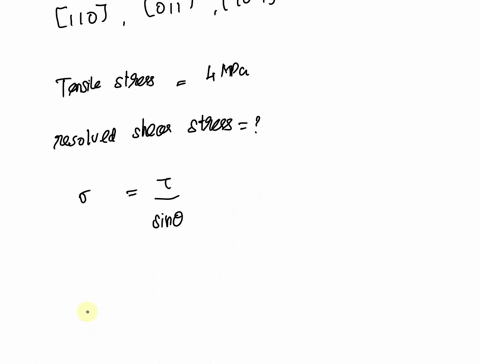 [110], [011],
Tensile stress = 4 MPa
resolved shear stress = ?
σ = τ / sinθ